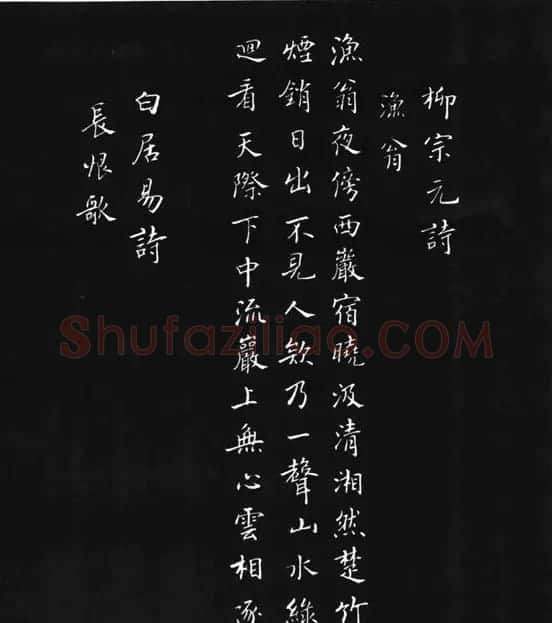 柳宗元詩
漁翁
漁翁夜傍西巖宿曉汲清湘然楚竹
煙銷日出不見人欸乃一聲山水綠
迴看天際下中流巖上無心雲相逐
白居易詩
長恨歌
Shufaziliao.COM